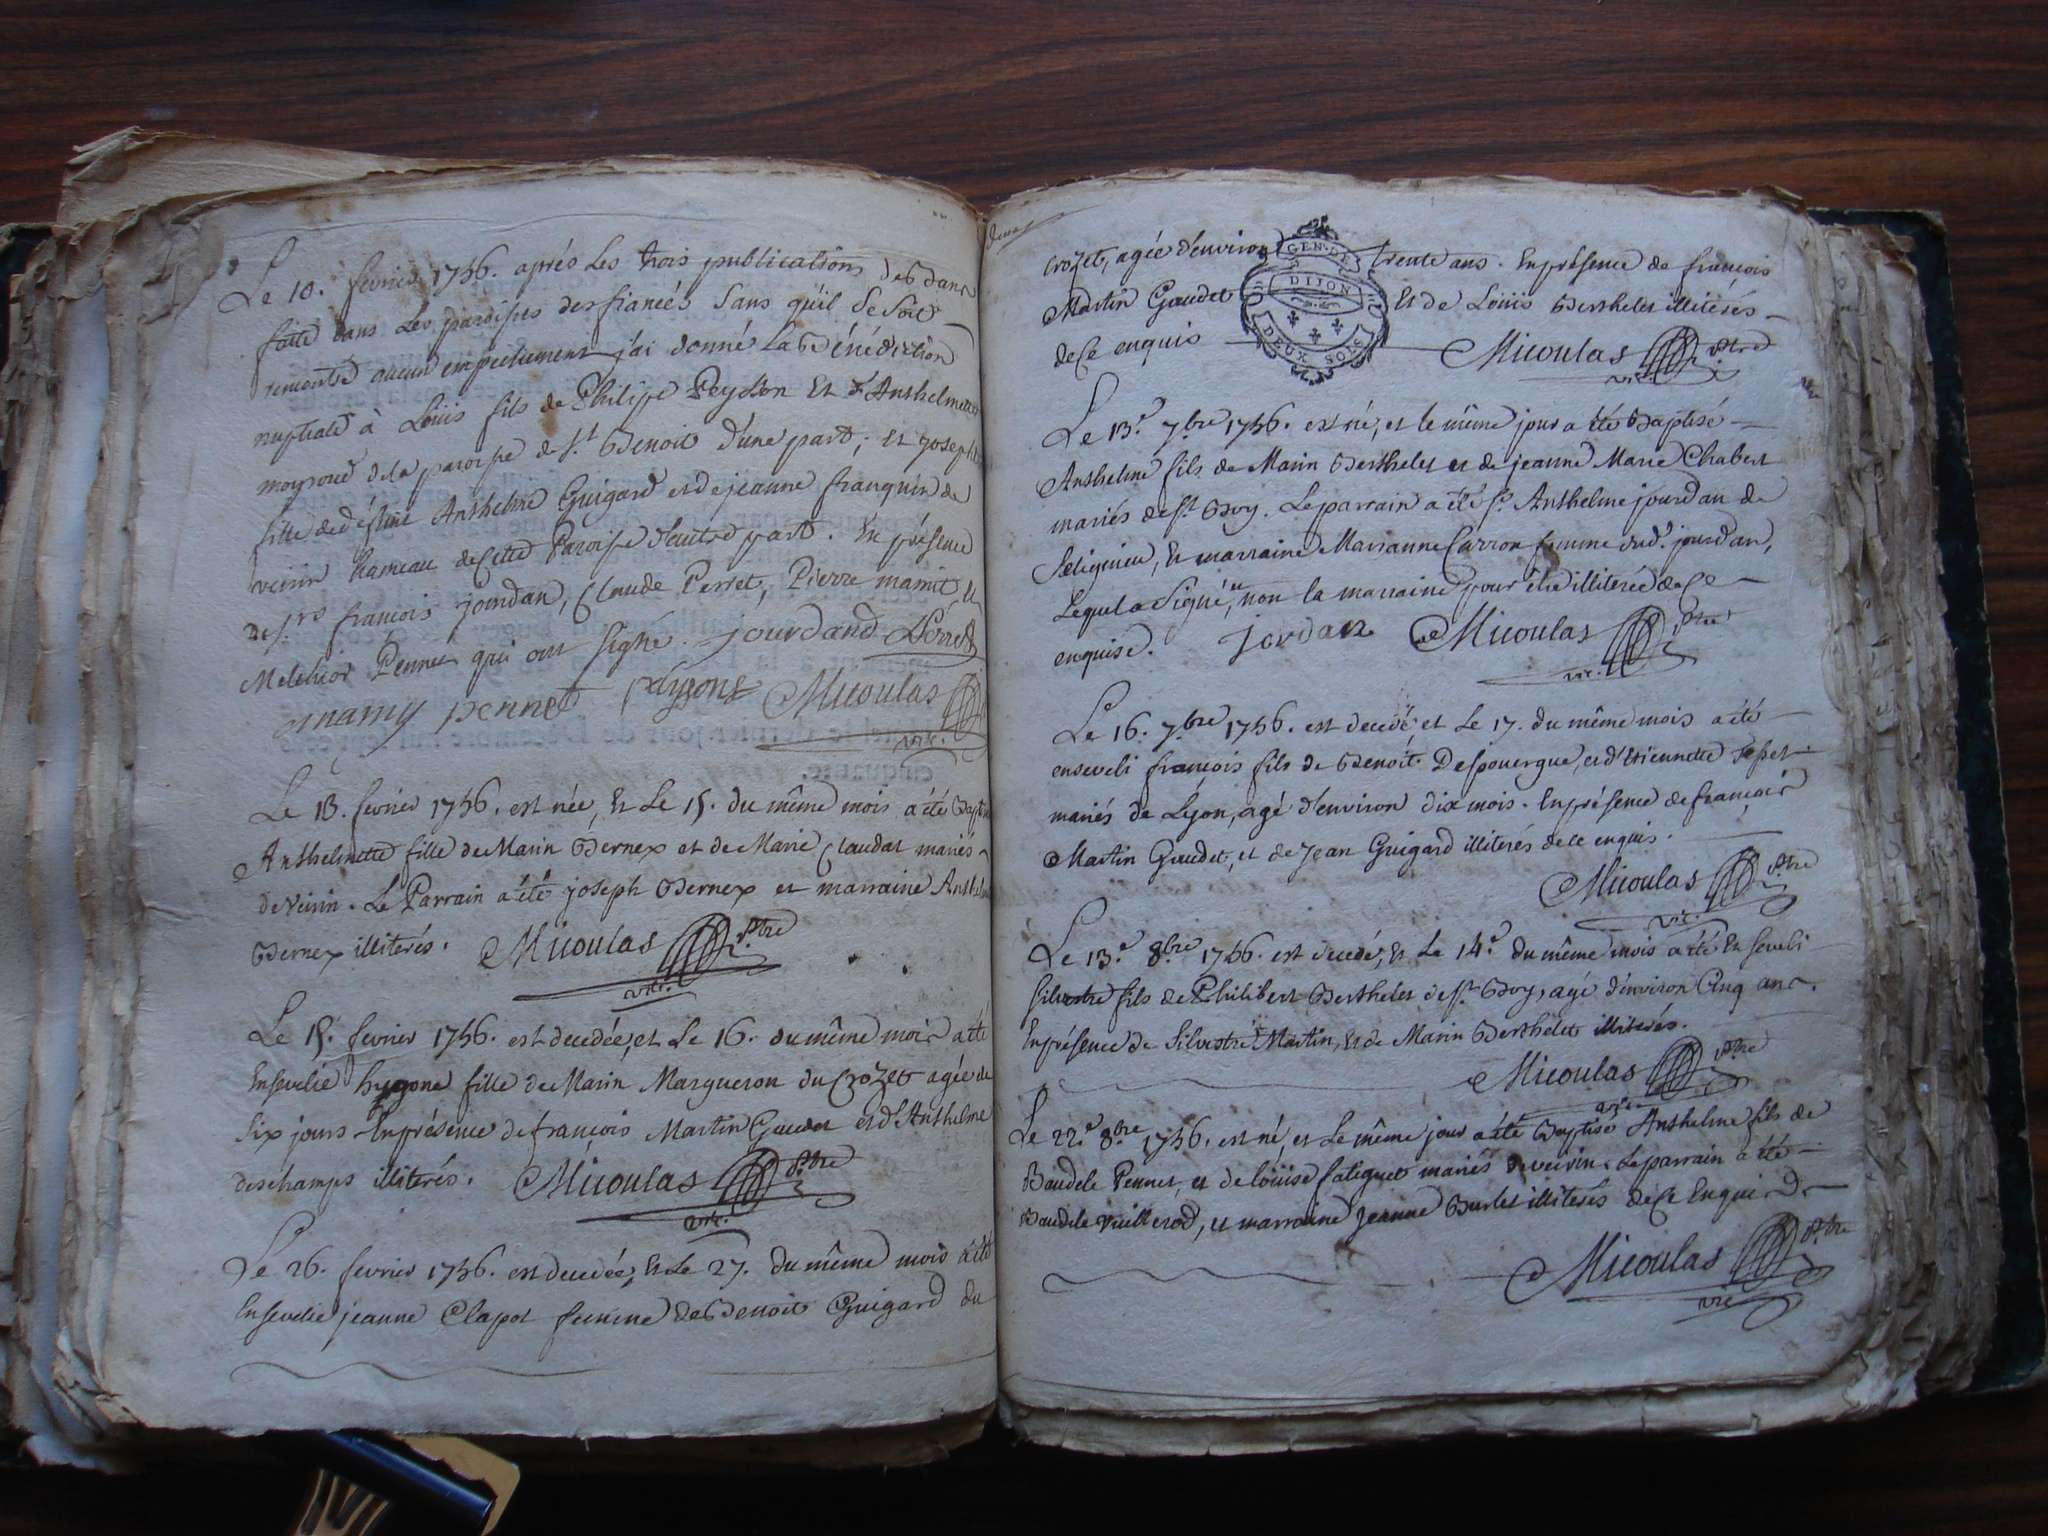 Le 10. fevrier 1756. aprés les trois publications des bans
faite dans les paroisses des fiancés sans qu'il se soit
rencontré aucun empechement j'ai donné la bénédiction
nuptiale à Loüis fils de Philipe Peysson et d'Anthelmette
moyroud de la paroisse de St. Benoit d'une part; et Josephte
fille de défunt Anthelme Guigard et de jeanne franquin de
veirin hameau de cette Paroisse d'autre part. En présence
de srs. françois jourdan, Claude Perret, Pierre mamit, et
Melchior Pennet qui ont signé. jourdand Perret
mamy pennet Micoulas
vic.
Le 13. fevrier 1756. est née, et Le 15. du même mois a été Baptisée
Anthelmette fille de Marin Bernex et de Marie Claudat mariés
de veirin. Le Parrain a été joseph Bernex et marraine Anthelmette
Bernex illiterés. Micoulas ptre
vic.
Le 15. fevrier 1756. est decedée, et Le 16. du même mois a été
Ensevelie hugone fille de Marin Margueron du Crozet agée de
six jours En présence de françois Martin Gaudet et d'Anthelme
deschamps illiterés. Micoulas ptre
vic.
Le 26. fevrier 1756. est decedée, et Le 27. du même mois a été
Ensevelie jeanne Clapot femme de Benoit Guigard du
crozet, agée d'environ trente ans. En présence de françois
Martin Gaudet et de Loüis Berthelet illiterés
de ce enquis Micoulas ptre
vic.
GEN. DE
DIJON
DEUX SOLS
Le 13e. 7bre 1756. est né, et le même jour a été Baptisé
Anthelme fils de Marin Berthelet et de jeanne Marie Chabert
mariés de St. Boy. Le parrain a été sr. Anthelme jourdan de
Selignieu, et marraine Marianne Carron femme dud. jourdan,
Lequel a signé, non la marraine pour être illiterée de ce
enquise. jordan Micoulas ptre
vic.
Le 16. 7bre 1756. est decedé et Le 17. du même mois a été
enseveli françois fils de Benoit Despouergue, et d'Etiennette
mariés de Lÿon, agé d'environ dix mois. En présence de françois
Martin Gaudet, et de Jean Guigard illiterés de ce enquis.
Micoulas ptre
vic.
Le 13e. 8bre 1756. est decedé, et Le 14e. du même mois a été Enseveli
silvestre fils de Philibert Berthelet de St. Boy, agé d'environ Cinq ans.
En présence de Silvestre Martin, et de Marin Berthelet illiterés.
Micoulas ptre
vic.
Le 22e. 8bre 1756. est né, et Le même jour a été Baptisé Anthelme fils de
Baudele Pennet, et de Loüise faliguet mariés de veirin. Le parrain a été
Baudele vuillerod, et marraine Jeanne Burlet illiterés de ce Enquis
Micoulas ptre
vic